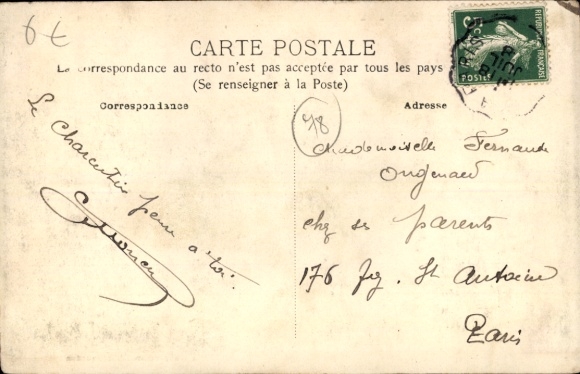 6 €
CARTE POSTALE
La correspondance au recto n'est pas acceptée par tous les pays
(Se renseigner à la Poste)
Correspondance
Adresse
78
Le Charcutier pense à toi.
Mademoiselle Fernande
chez ses parents
176 Fbg. St Antoine
Paris
5c
REPUBLIQUE FRANÇAISE
POSTES
PARIS
JUIL